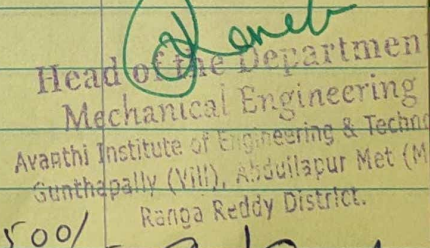 Head of the Departmen
Mechanical Engineering
Avanthi Institute of Engineering & Techno
Gunthapally (Vill), Abdullapur Met (M
Ranga Reddy District.
500/